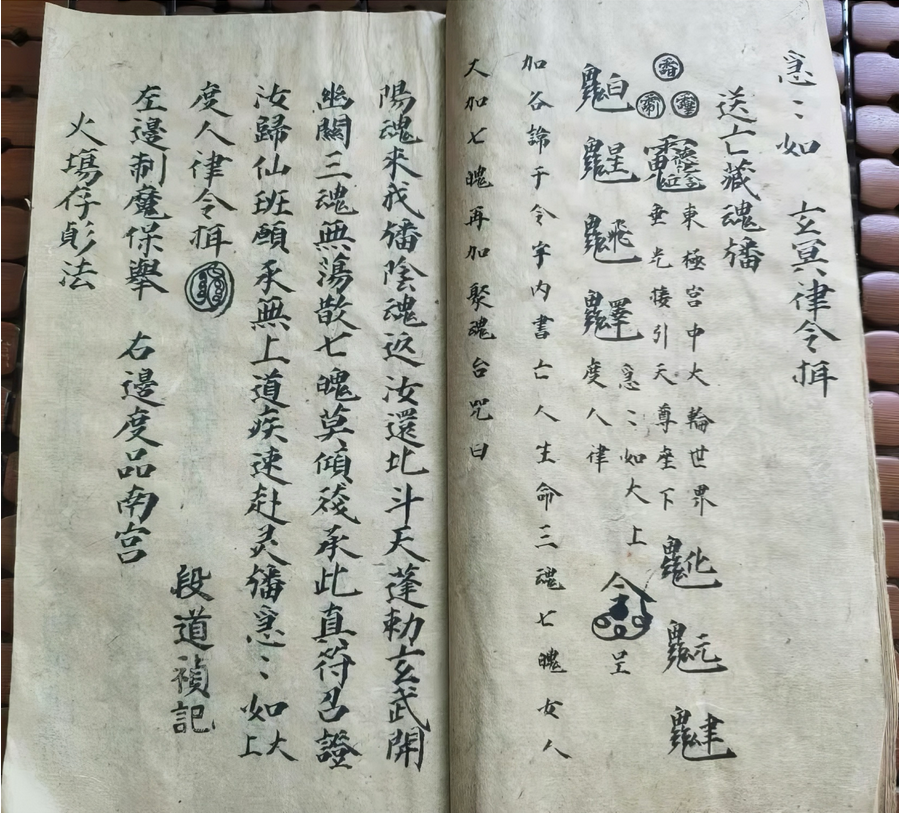 急〻如　玄冥律令揖
送亡藏魂旛
東極宮中大輪世界
垂光接引天尊座下
急〻如大上
度人律
加谷諦于令字内書亡人生命三魂七魄女人
大加七魄再加聚魂台咒曰
陽魂来我旛陰魂返汝還北斗天蓬勅玄武開
幽關三魂無蕩散七魄莫傾殘承此真符召證
汝歸仙班願承無上道疾速赴灵旛急〻如大上
度人律令揖
段道禎記
左邊制魔保舉　右邊度品南宫
火塲存彩法